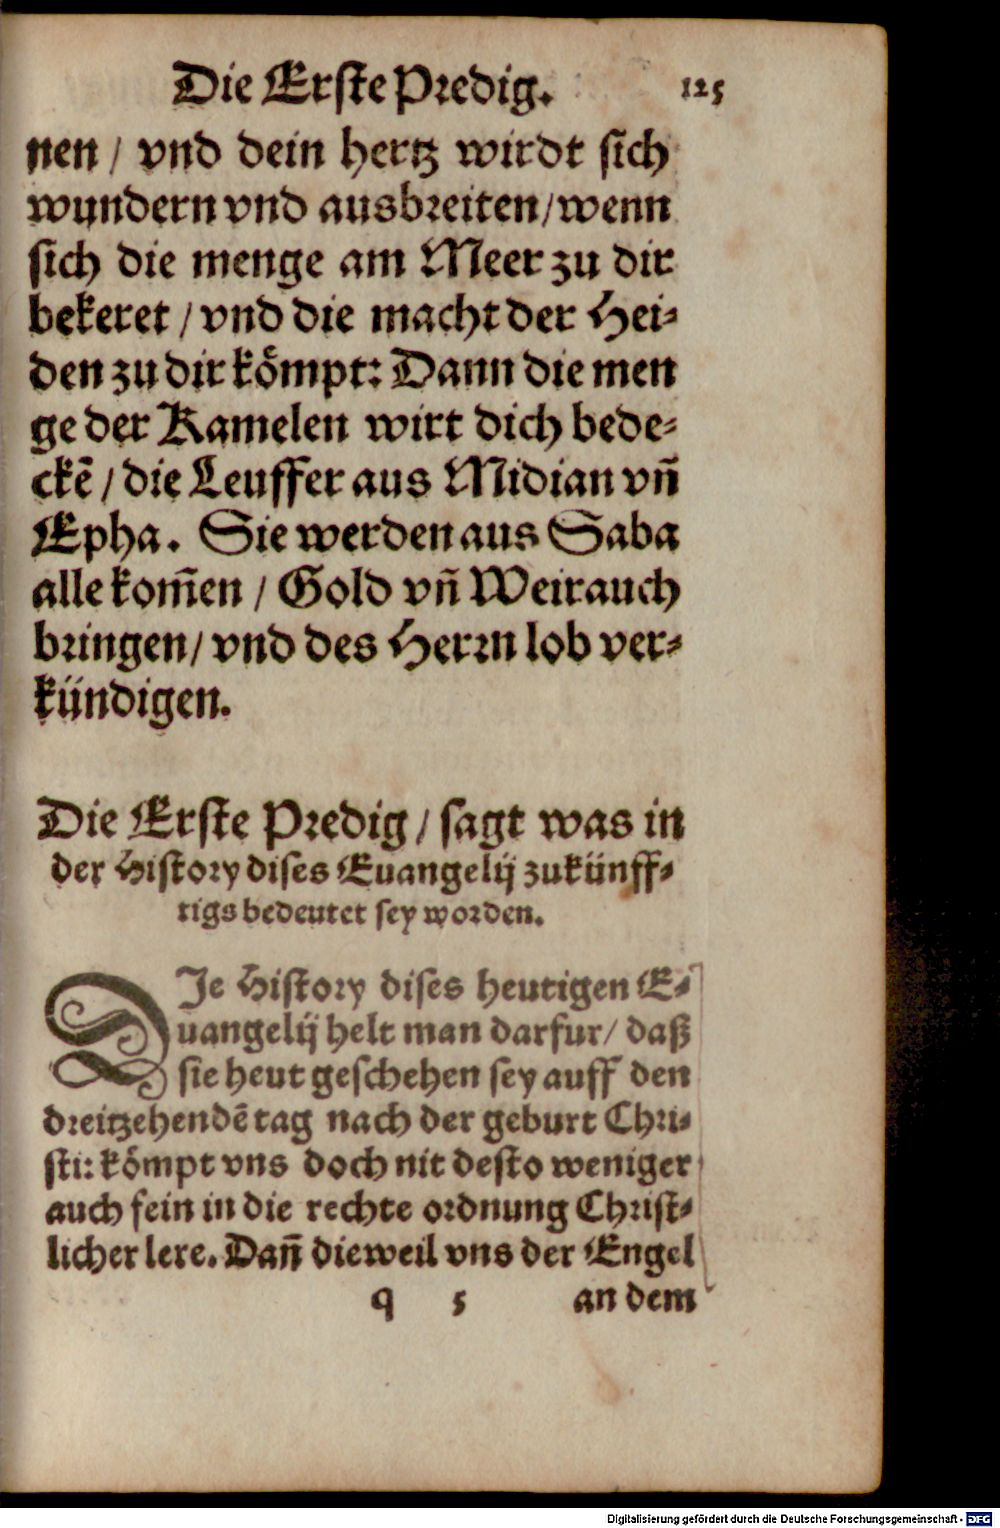 Die Erste Predig. 125
nen / vnd dein hertz wirdt sich
wundern vnd ausbreiten/wenn
sich die menge am Meer zu dir
bekeret / vnd die macht der Hei⸗
den zu dir kömpt: Dann die men
ge der Kamelen wirt dich bede⸗
ckē / die Leuffer aus Midian vñ
Epha. Sie werden aus Saba
alle kom̄en / Gold vñ Weirauch
bringen/ vnd des Herrn lob ver⸗
kündigen.
Die Erste Predig / sagt was in
der History dises Euangelij zukünff⸗
tigs bedeutet sey worden.
DIe History dises heutigen E⸗
uangelij helt man darfur/ daß
sie heut geschehen sey auff den
dreitzehendē tag nach der geburt Chri⸗
sti: kömpt vns doch nit desto weniger
auch fein in die rechte ordnung Christ⸗
licher lere. Dañ dieweil vns der Engel
q 5 an dem
Digitalisierung gefördert durch die Deutsche Forschungsgemeinschaft - DFG